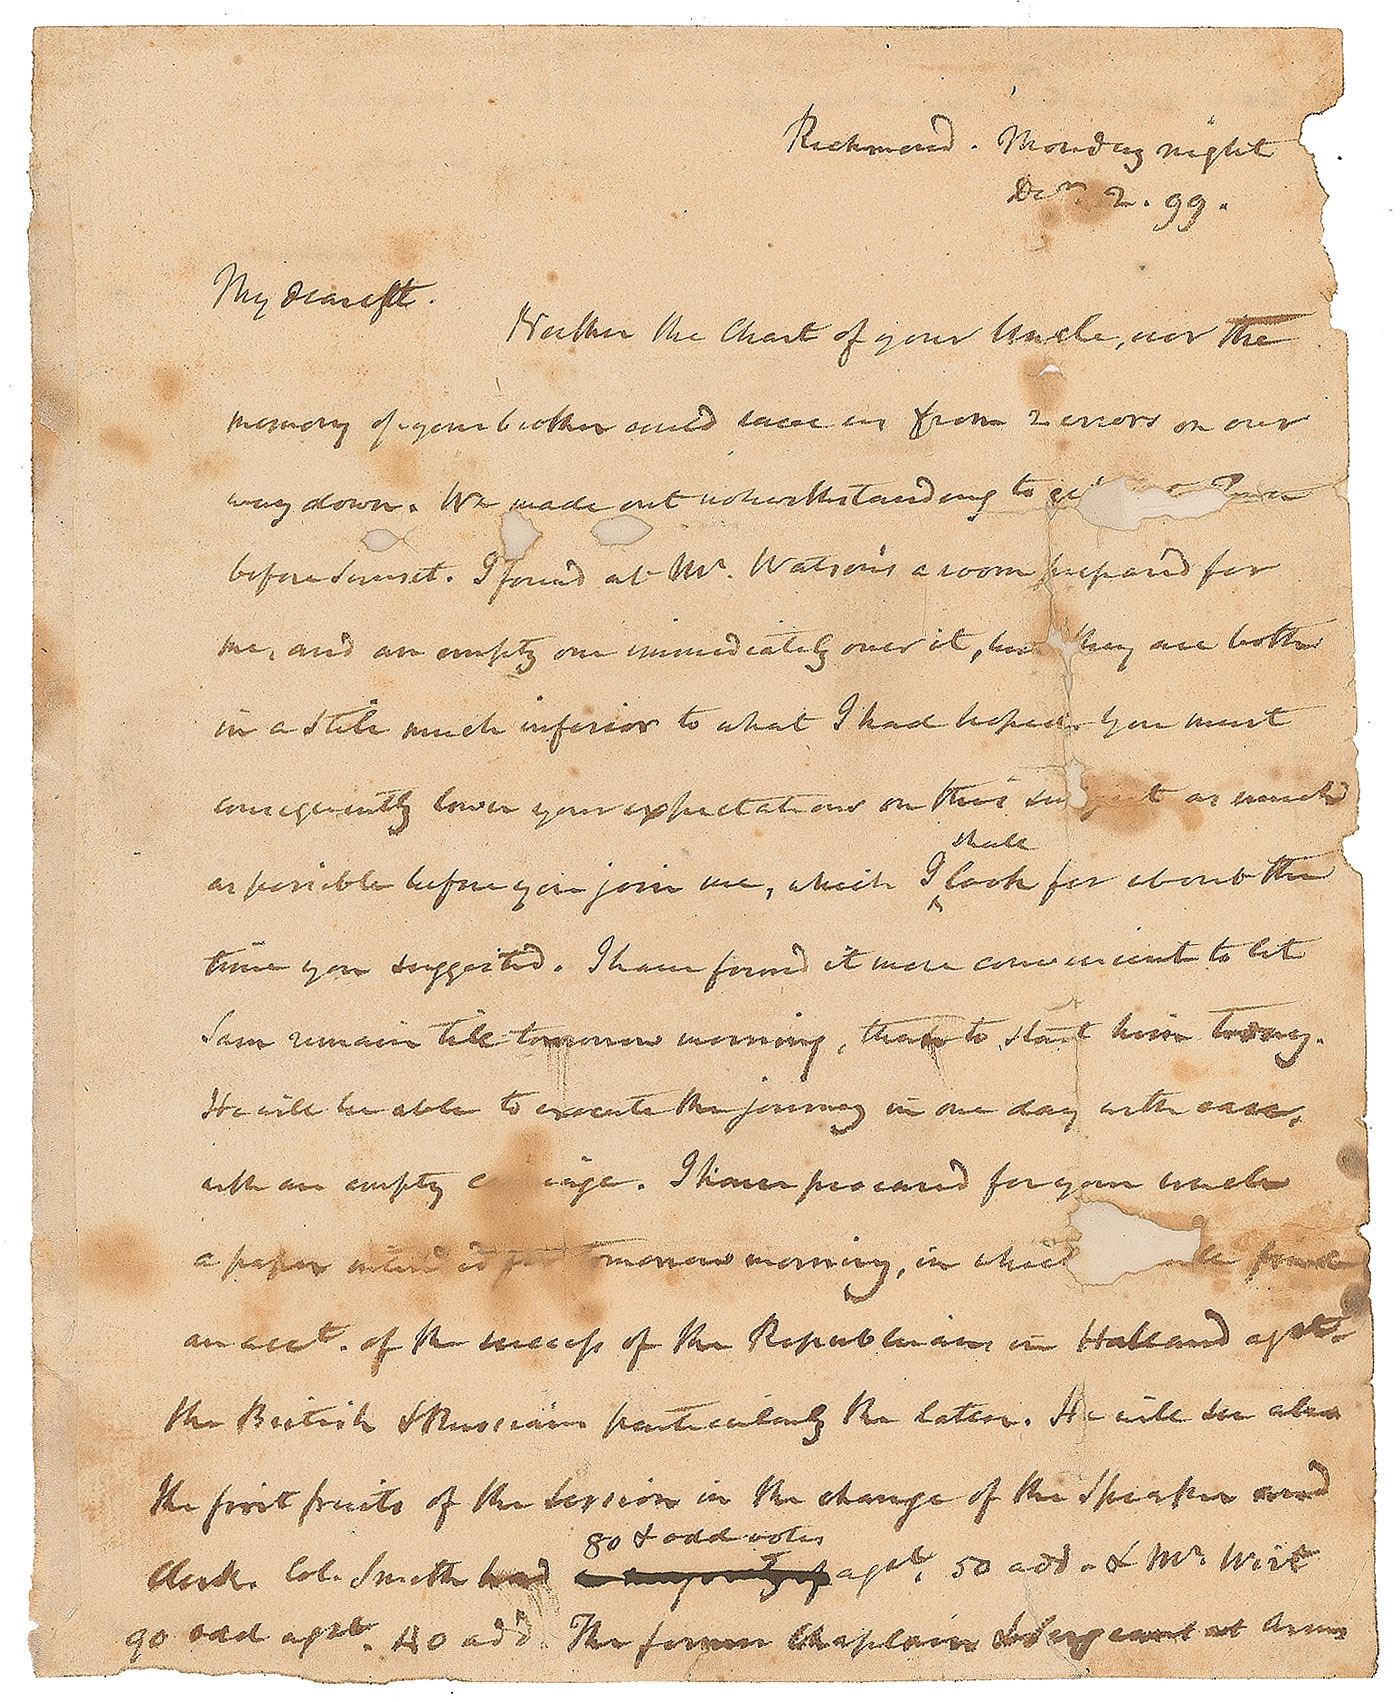 Richmond. Monday night
Decr. 2. 99.
My dearest.
Neither the Chart of your Uncle, nor the
memory of your brother could save us from 2 errors on our
way down. We made out notwithstanding to
before Sunset. I found at Mr. Watson's a room prepared for
me, and an empty one immediately over it, but they are both
in a stile much inferior to what I had hoped. You must
consequently lower your expectations on this subject as much
as possible before you join me, which I shall look for about the
time you suggested. I have found it more convenient to let
Sam remain till tomorrow morning, than to start him today.
He will be able to execute the journey in one day with ease,
with an empty carriage. I have procured for your uncle
a paper tomorrow morning, in which find
an acct. of the success of the Republicans in Holland agst.
the British & Russians particularly the latter. He will see also
the first fruits of the Session in the change of the Speaker and
Clerk. Col. Smith had 80 & odd votes agst. 50 odd. & Mr. Wirt
90 odd agst. 40 odd. The former Chaplain & Sergeant at Arms